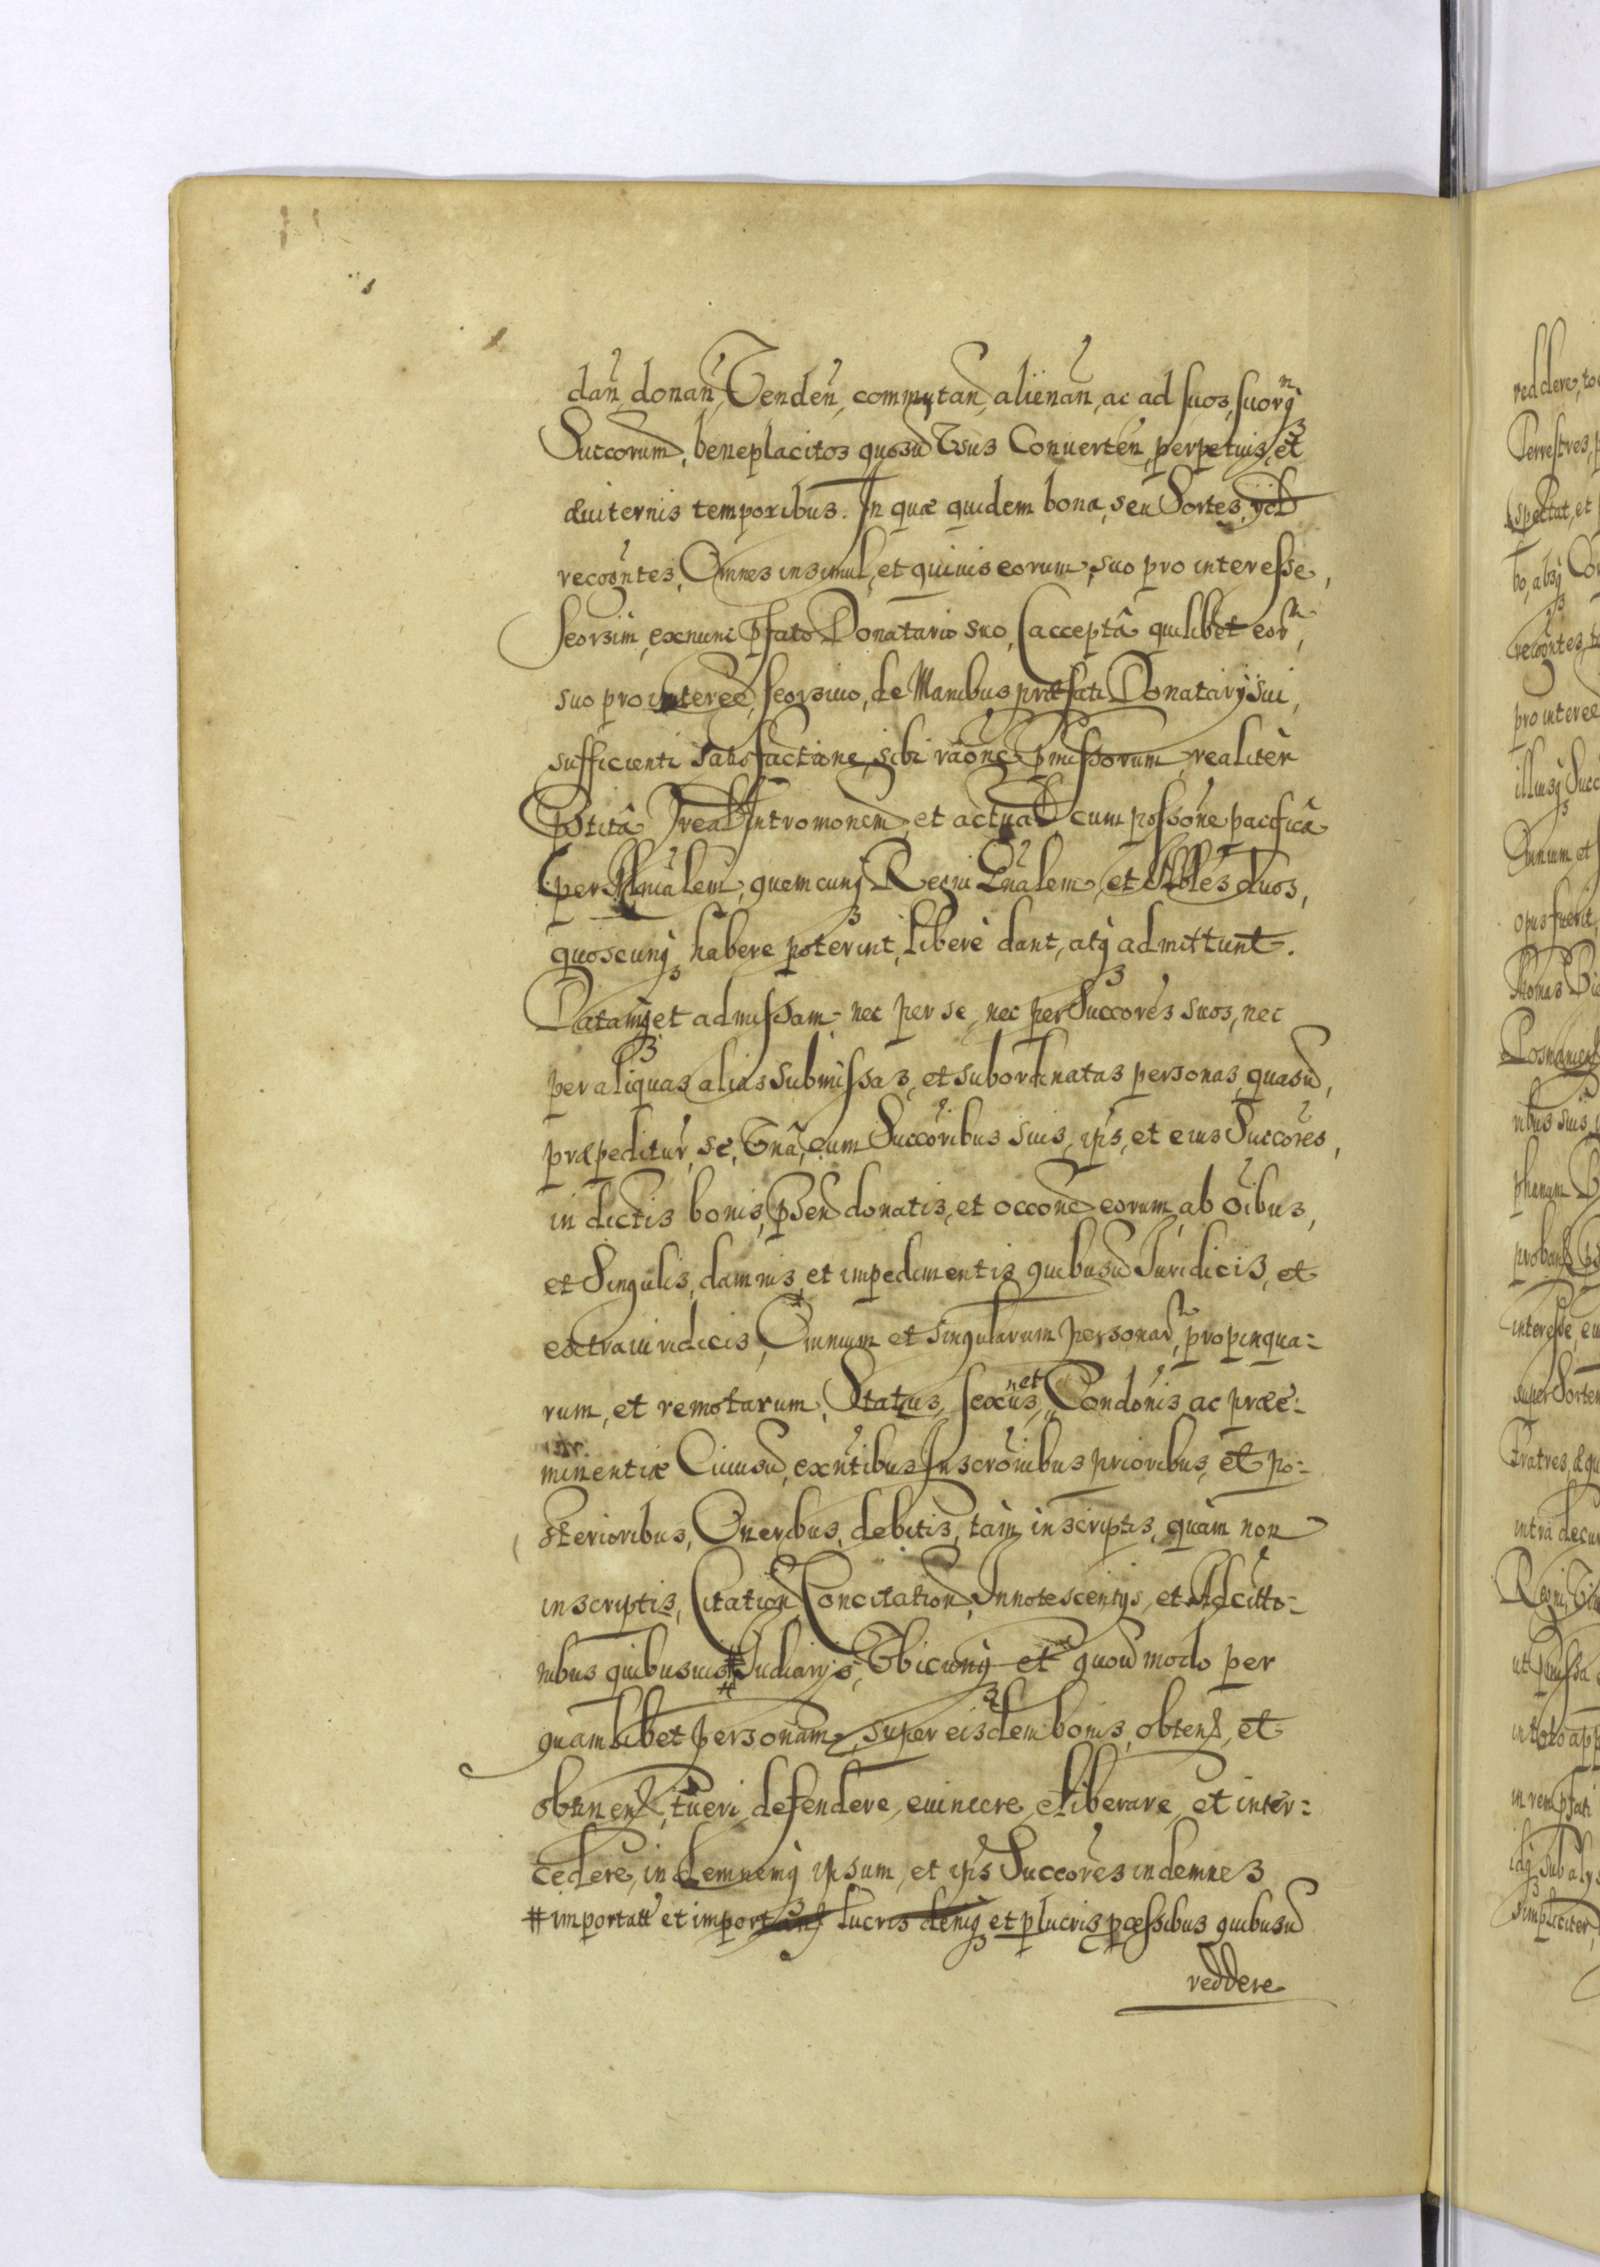 dan̄, donan̄, Venden̄, commutan̄, aliënan̄, ac ad suos, suorq3
Succorum, beneplacitos quosū Vsus Conuerten̄, perpetuis, et
æuiternis temporibus. In quæ quidem bona, seu Sortes,
recogn̄tes, Omnes insimul, et quiuis eorum, suo pro interesse,
seorsim, exnunc pfato Donatario suo, (acceptâ quilibet eor,
suo pro interee, seorsiuo, de Manibus præfati Donatarÿ sui,
sufficienti satisfactione, sibi rãone pmissorum, realitèr
pstitâ) real Intromonem, et actual cum possone pacificâ
(per Mnialem, quemcunq Regni Gnalem, et Nobles duos,
quoscunq3 habere poterint, liberè dant, atq3 admittunt.
Datamq3 et admissam, nec per se, nec per Succores suos, nec
per aliquas alias submissas, et subordinatas personas, quasū,
præpeditur, se, Vnâ, cum Succoribus suis, ips, et eius Succores,
in dictis bonis, psen donatis, et occone eorum, ab oibus,
et Singulis, damnis, et impedimentis, quibusū Iuridicis, et
extraiuridicis, Omnium et singularum personar, propinqua=
rum, et remotarum, Status, sexus, et Condonis, ac præe=
minentiæ Cuiusū, exntibus Inscronibus prioribus, et po=
sterioribus, Oneribus, debitis, tàm inscriptis, quàm non
inscriptis, Citation, Concitation, Innotescentÿs, et Adcitto=
nibus quibusuis # Iudiarÿs, Vbicunq3 et quouū modo per
quamlibet personam, super eisdem bonis, obtent, et
obtinen, tueri, defendere, euincere, eliberare, et inter=
cedere, indemnemq ipsum, et ips Succores indemnes
# importatt et importan lucris deniq3 et plucris pœssibus quibusū
reddere